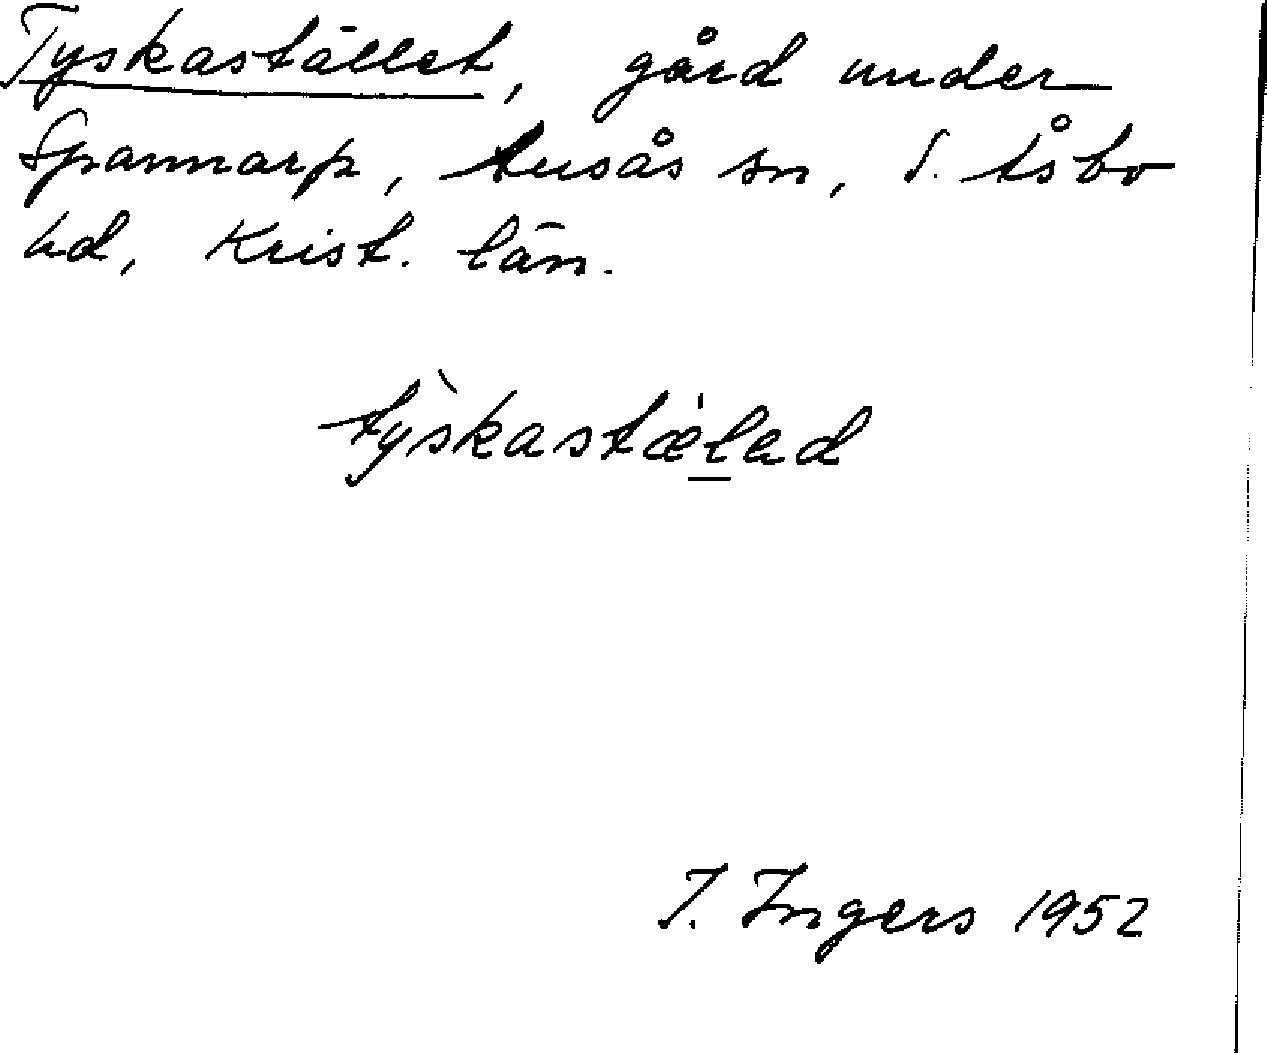 Tyskastället, gård under
Spannarp, Ausås sn, S. Åsbo
hd, Krist. län.
tỳskastæ̍lad
I. Ingers 1952